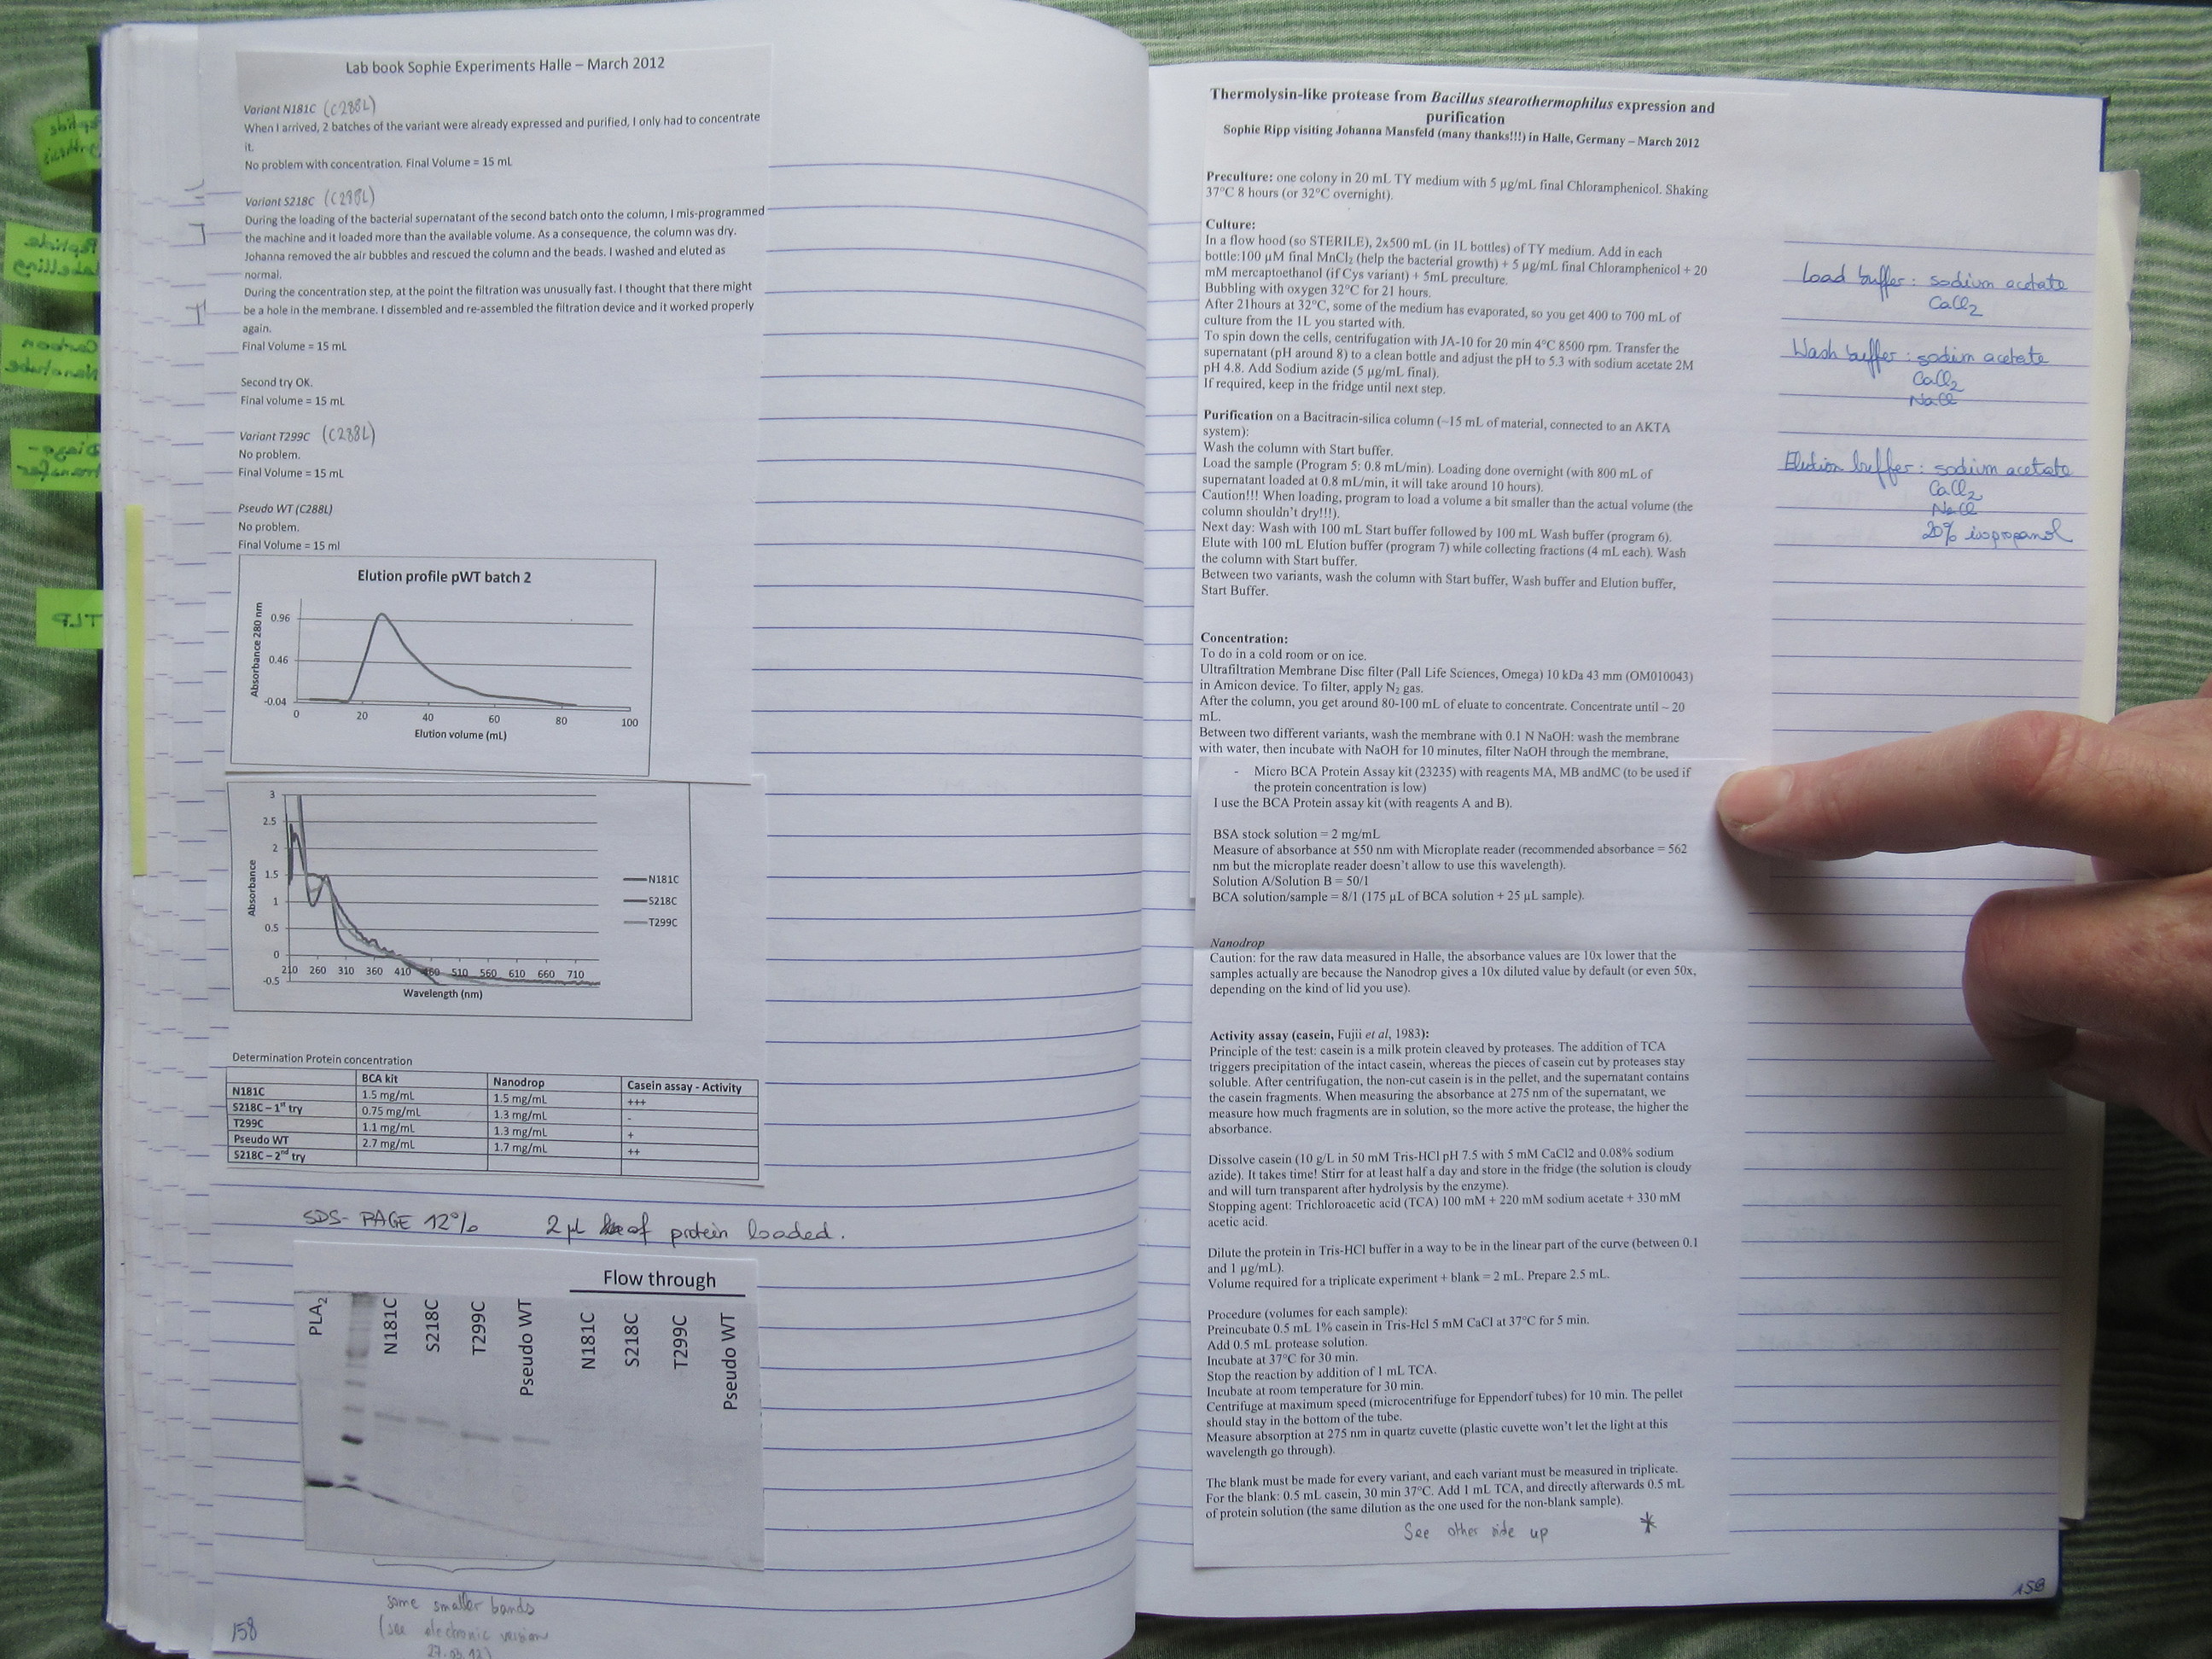 Lab book Sophie Experiments Halle – March 2012
Variant N181C (C288L)
When I arrived, 2 batches of the variant were already expressed and purified, I only had to concentrate
it.
No problem with concentration. Final Volume = 15 mL
Variant S218C (C288L)
During the loading of the bacterial supernatant of the second batch onto the column, I mis-programmed
the machine and it loaded more than the available volume. As a consequence, the column was dry.
Johanna removed the air bubbles and rescued the column and the beads. I washed and eluted as
normal.
During the concentration step, at the point the filtration was unusually fast. I thought that there might
be a hole in the membrane. I dissembled and re-assembled the filtration device and it worked properly
again.
Final Volume = 15 mL
Second try OK.
Final volume = 15 mL
Variant T299C (C288L)
No problem.
Final Volume = 15 mL
Pseudo WT (C288L)
No problem.
Final Volume = 15 ml
Elution profile pWT batch 2
Absorbance 280 nm
0.96
0.46
-0.04
0 20 40 60 80 100
Elution volume (mL)
Absorbance
3
2.5
2
1.5
1
0.5
0
-0.5
210 260 310 360 410 460 510 560 610 660 710
Wavelength (nm)
N181C
S218C
T299C
Determination Protein concentration
BCA kit Nanodrop Casein assay - Activity
N181C 1.5 mg/mL 1.5 mg/mL +++
S218C – 1st try 0.75 mg/mL 1.3 mg/mL -
T299C 1.1 mg/mL 1.3 mg/mL +
Pseudo WT 2.7 mg/mL 1.7 mg/mL ++
S218C – 2nd try
SDS-PAGE 12% 2 µL of protein loaded.
Flow through
PLA2 N181C S218C T299C Pseudo WT N181C S218C T299C Pseudo WT
some smaller bands
(see electronic version
27.03.12)
158
Peptide
Labelling
Carbon
Nanotube
Diazo-
transfer
TLP
Thermolysin-like protease from Bacillus stearothermophilus expression and
purification
Sophie Ripp visiting Johanna Mansfeld (many thanks!!!) in Halle, Germany – March 2012
Preculture: one colony in 20 mL TY medium with 5 µg/mL final Chloramphenicol. Shaking
37°C 8 hours (or 32°C overnight).
Culture:
In a flow hood (so STERILE), 2x500 mL (in 1L bottles) of TY medium. Add in each
bottle:100 µM final MnCl2 (help the bacterial growth) + 5 µg/mL final Chloramphenicol + 20
mM mercaptoethanol (if Cys variant) + 5mL preculture.
Bubbling with oxygen 32°C for 21 hours.
After 21hours at 32°C, some of the medium has evaporated, so you get 400 to 700 mL of
culture from the 1L you started with.
To spin down the cells, centrifugation with JA-10 for 20 min 4°C 8500 rpm. Transfer the
supernatant (pH around 8) to a clean bottle and adjust the pH to 5.3 with sodium acetate 2M
pH 4.8. Add Sodium azide (5 µg/mL final).
If required, keep in the fridge until next step.
Purification on a Bacitracin-silica column (~15 mL of material, connected to an AKTA
system):
Wash the column with Start buffer.
Load the sample (Program 5: 0.8 mL/min). Loading done overnight (with 800 mL of
supernatant loaded at 0.8 mL/min, it will take around 10 hours).
Caution!!! When loading, program to load a volume a bit smaller than the actual volume (the
column shouldn't dry!!!).
Next day: Wash with 100 mL Start buffer followed by 100 mL Wash buffer (program 6).
Elute with 100 mL Elution buffer (program 7) while collecting fractions (4 mL each). Wash
the column with Start buffer.
Between two variants, wash the column with Start buffer, Wash buffer and Elution buffer,
Start Buffer.
Concentration:
To do in a cold room or on ice.
Ultrafiltration Membrane Disc filter (Pall Life Sciences, Omega) 10 kDa 43 mm (OM010043)
in Amicon device. To filter, apply N2 gas.
After the column, you get around 80-100 mL of eluate to concentrate. Concentrate until ~ 20
mL.
Between two different variants, wash the membrane with 0.1 N NaOH: wash the membrane
with water, then incubate with NaOH for 10 minutes, filter NaOH through the membrane,
- Micro BCA Protein Assay kit (23235) with reagents MA, MB andMC (to be used if
the protein concentration is low)
I use the BCA Protein assay kit (with reagents A and B).
BSA stock solution = 2 mg/mL
Measure of absorbance at 550 nm with Microplate reader (recommended absorbance = 562
nm but the microplate reader doesn't allow to use this wavelength).
Solution A/Solution B = 50/1
BCA solution/sample = 8/1 (175 µL of BCA solution + 25 µL sample).
Nanodrop
Caution: for the raw data measured in Halle, the absorbance values are 10x lower that the
samples actually are because the Nanodrop gives a 10x diluted value by default (or even 50x,
depending on the kind of lid you use).
Activity assay (casein, Fujii et al, 1983):
Principle of the test: casein is a milk protein cleaved by proteases. The addition of TCA
triggers precipitation of the intact casein, whereas the pieces of casein cut by proteases stay
soluble. After centrifugation, the non-cut casein is in the pellet, and the supernatant contains
the casein fragments. When measuring the absorbance at 275 nm of the supernatant, we
measure how much fragments are in solution, so the more active the protease, the higher the
absorbance.
Dissolve casein (10 g/L in 50 mM Tris-HCl pH 7.5 with 5 mM CaCl2 and 0.08% sodium
azide). It takes time! Stirr for at least half a day and store in the fridge (the solution is cloudy
and will turn transparent after hydrolysis by the enzyme).
Stopping agent: Trichloroacetic acid (TCA) 100 mM + 220 mM sodium acetate + 330 mM
acetic acid.
Dilute the protein in Tris-HCl buffer in a way to be in the linear part of the curve (between 0.1
and 1 µg/mL).
Volume required for a triplicate experiment + blank = 2 mL. Prepare 2.5 mL.
Procedure (volumes for each sample):
Preincubate 0.5 mL 1% casein in Tris-Hcl 5 mM CaCl at 37°C for 5 min.
Add 0.5 mL protease solution.
Incubate at 37°C for 30 min.
Stop the reaction by addition of 1 mL TCA.
Incubate at room temperature for 30 min.
Centrifuge at maximum speed (microcentrifuge for Eppendorf tubes) for 10 min. The pellet
should stay in the bottom of the tube.
Measure absorption at 275 nm in quartz cuvette (plastic cuvette won't let the light at this
wavelength go through).
The blank must be made for every variant, and each variant must be measured in triplicate.
For the blank: 0.5 mL casein, 30 min 37°C. Add 1 mL TCA, and directly afterwards 0.5 mL
of protein solution (the same dilution as the one used for the non-blank sample).
See other side up *
Load buffer: sodium acetate
CaCl2
Wash buffer: sodium acetate
CaCl2
NaCl
Elution buffer: sodium acetate
CaCl2
NaCl
20% isopropanol
159